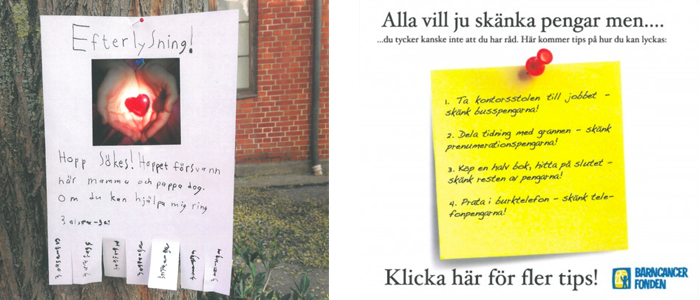 Efterlysning!
Hopp Sökes! Hoppet försvann
när mamma och pappa dog.
Om du kan hjälpa mig ring
Alla vill ju skänka pengar men....
...du tycker kanske inte att du har råd. Här kommer tips på hur du kan lyckas:
1. Ta kontorsstolen till jobbet -
skänk busspengarna!
2. Dela tidning med grannen - skänk
prenumerationspengarna!
3. Köp en halv bok, hitta på slutet -
skänk resten av pengarna!
4. Prata i burktelefon - skänk tele-
fonpengarna!
Klicka här för fler tips!
BARNCANCER
FONDEN